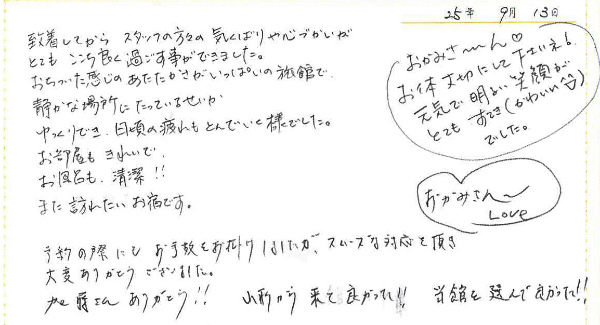 25年 9月 13日
到着してから スタッフの方々の 気くばりや心づかいが
とても ここち良く 過ごす事ができました。
おちついた感じの あたたかさがいっぱいの旅館で、
静かな場所に たっているせいか
ゆっくりでき、日頃の疲れも とんでいく様でした。
お部屋も きれいで、
お風呂も、清潔!!
また 訪れたい お宿です。
予約の際にも お手数をお掛けしましたが、スムーズな対応を頂き
大変ありがとう ございました。
さん ありがとう!! 山形から 来て 良かった!! 当館を 選んで良かった!!
おかみさ〜ん♡
お体 大切にして下さいネ!
元気で 明るい 笑顔が
とても すてき(かわいい^^)
でした。
おかみさん〜
Love